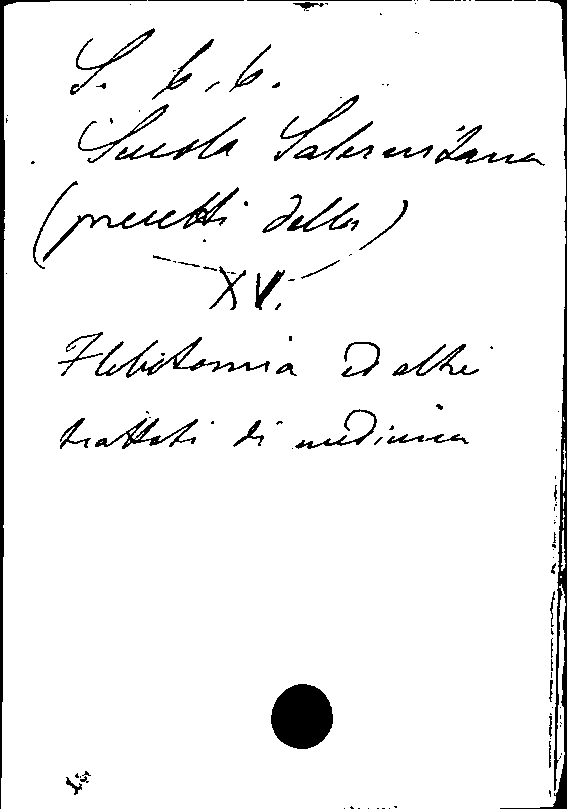 S. b. b.
Scuola Salernitana
(precetti della)
XV.
Flebotomia ed altri
trattati di medicina